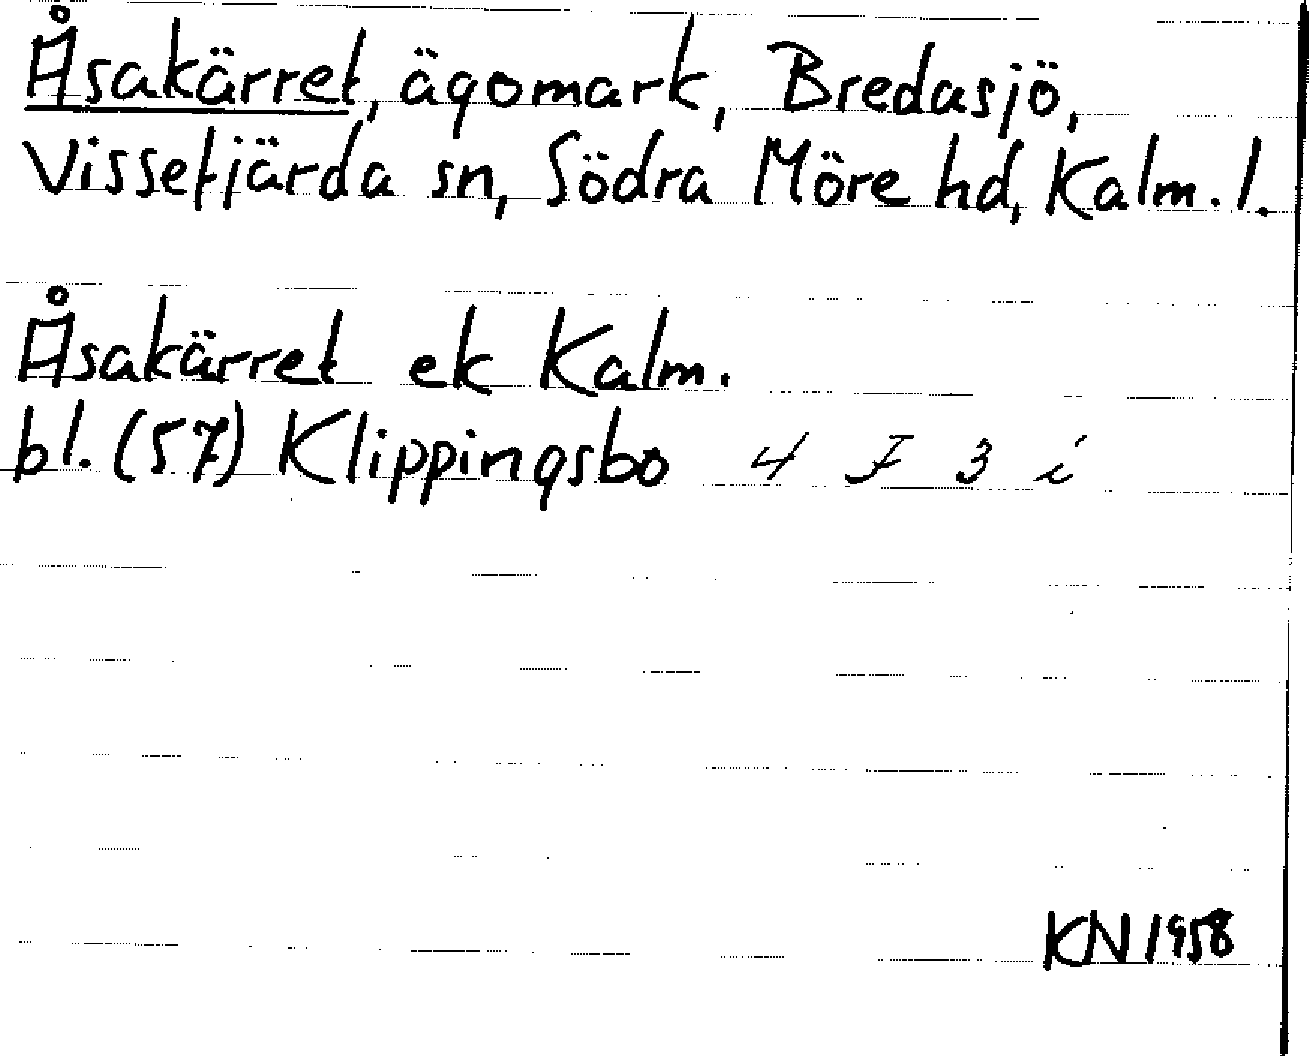 Åsakärret, ägomark, Bredasjö,
Vissefjärda sn, Södra Möre hd, Kalm. l.
Åsakärret ek Kalm.
bl. (57) Klippingsbo 4 F 3 i
KN 1958